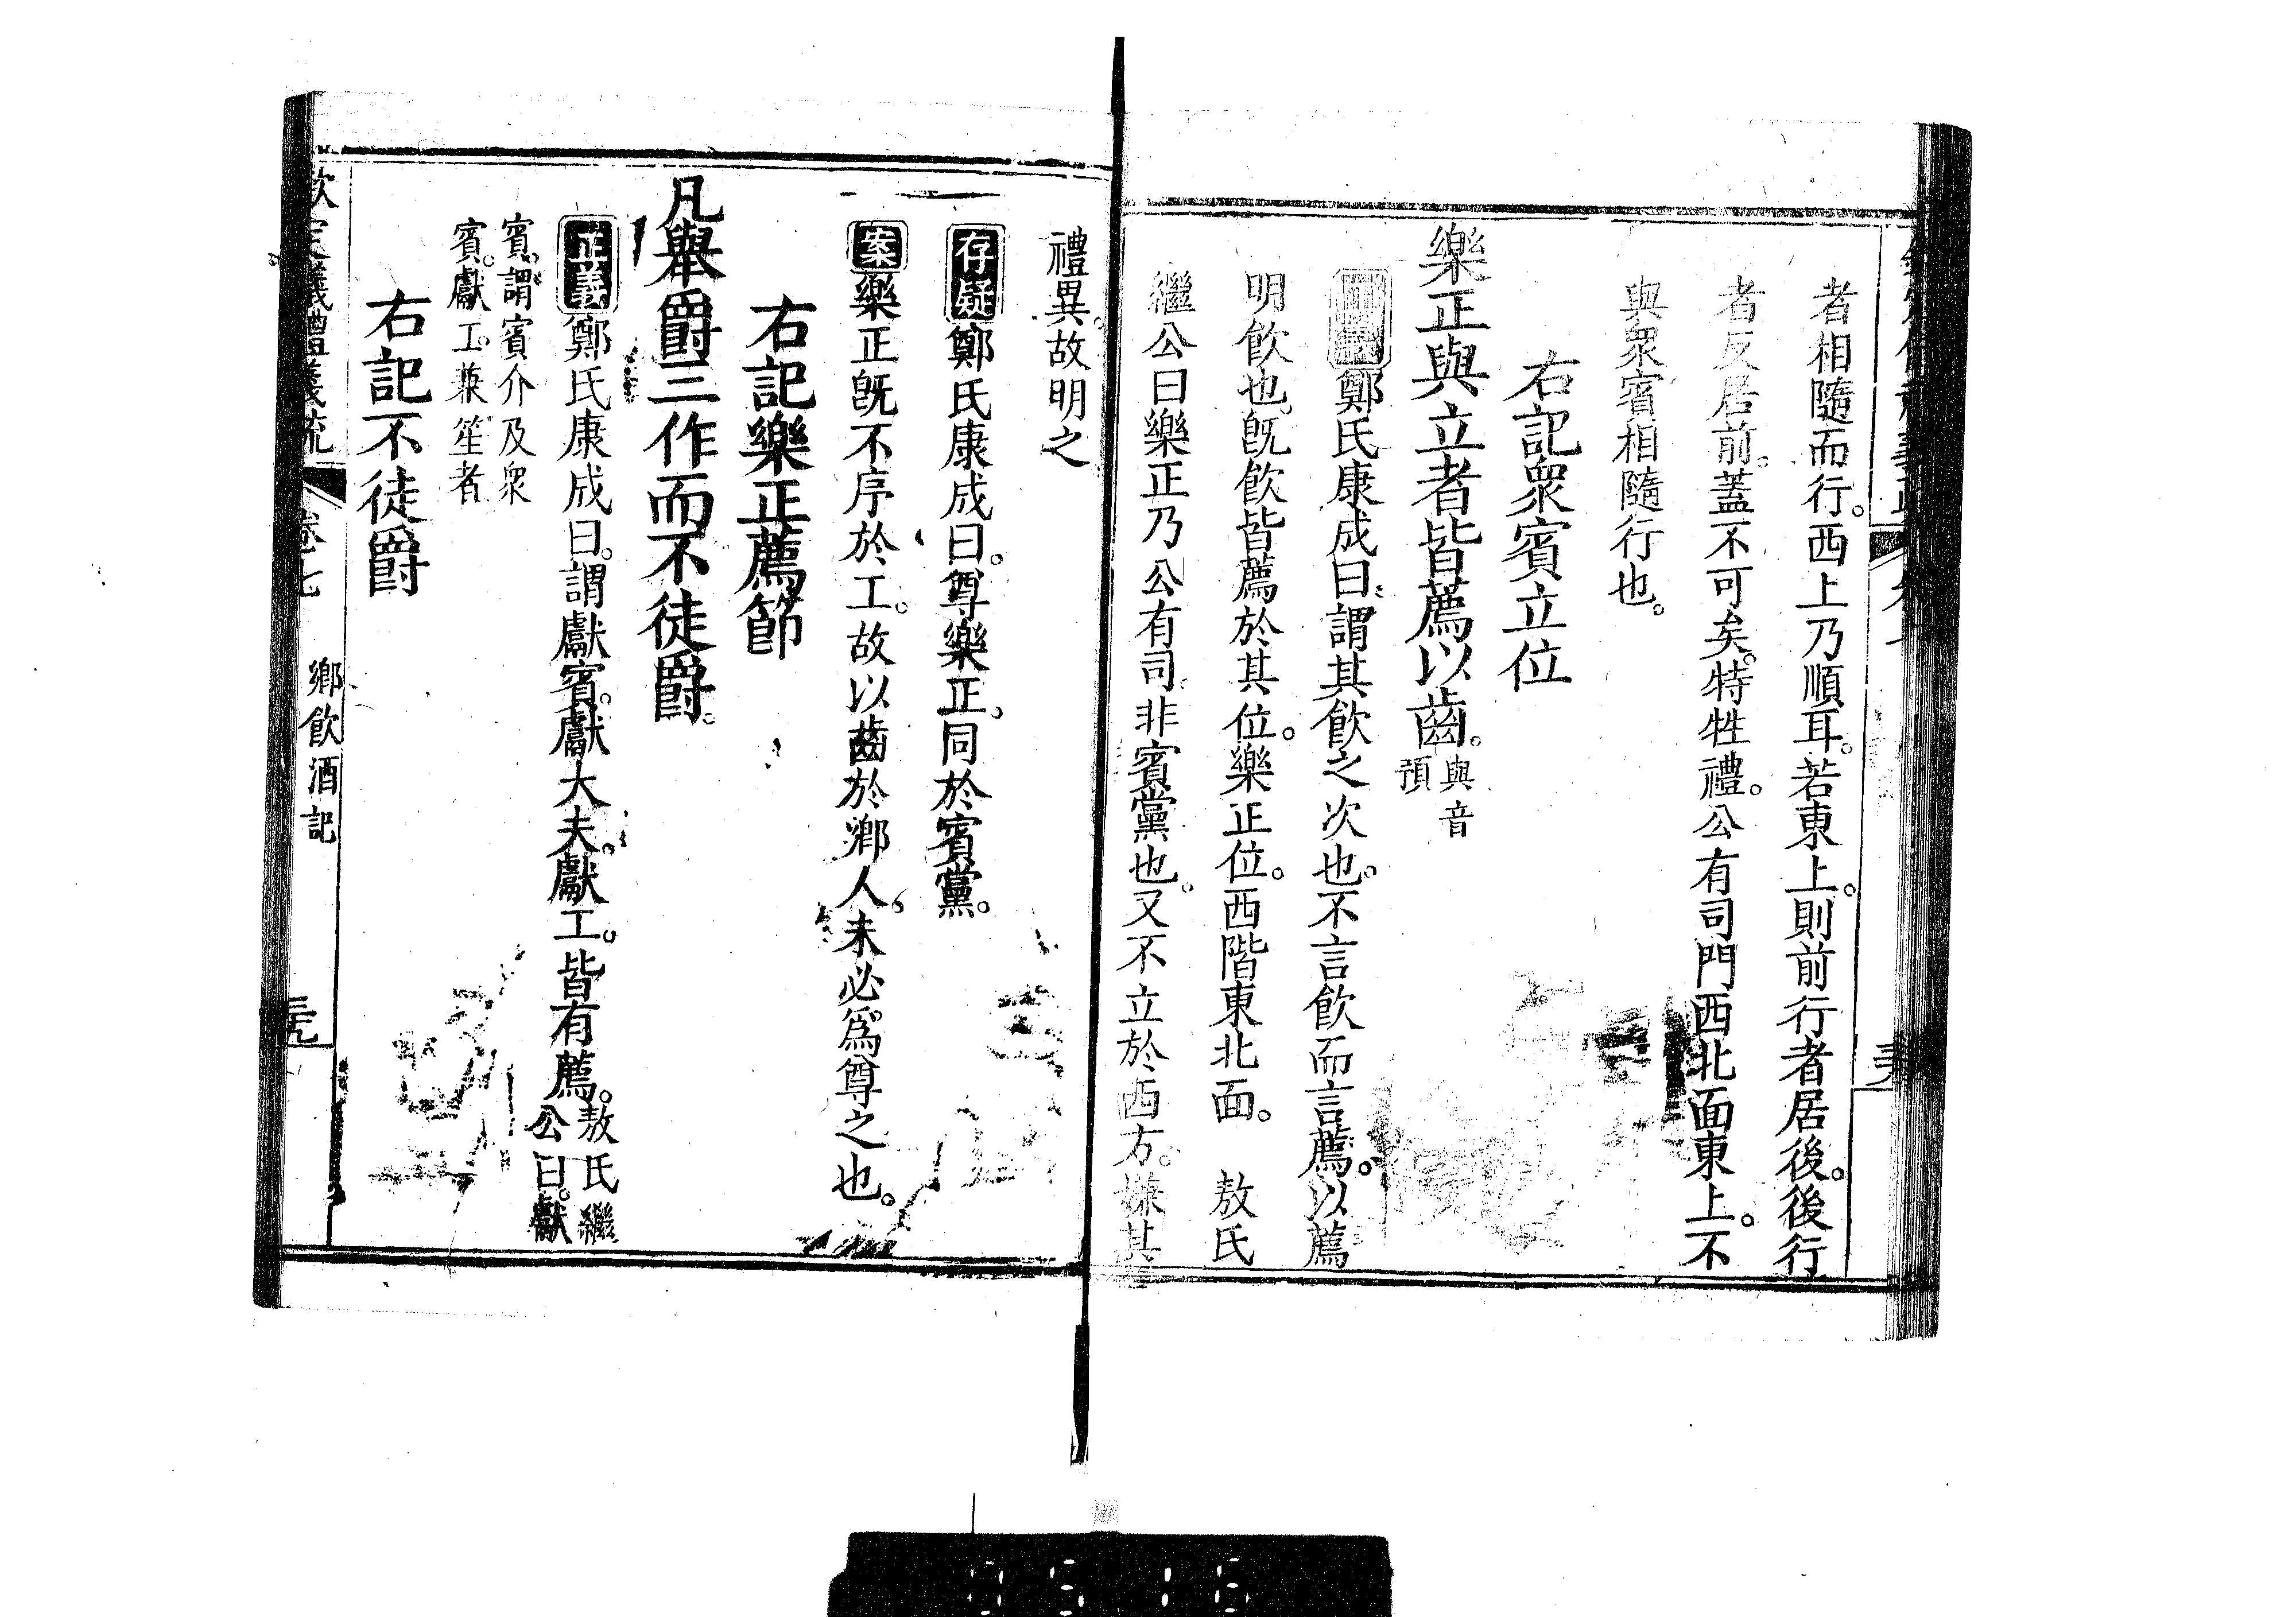 者相隨而行。西上乃順耳。若東上。則前行者居後。後行
者反居前。蓋不可矣。特牲禮。公有司門西北面東上。不
與衆賓相隨行也。
右記衆賓立位
樂正與立者皆薦以齒。與音預
鄭氏康成曰。謂其飲之次也。不言飲而言薦。以薦
明飲也。旣飲皆薦於其位。樂正位。西階東北面。 敖氏
繼公曰樂正乃公有司。非賓黨也。又不立於西方。嫌其
禮異。故明之
存疑鄭氏康成曰。尊樂正。同於賓黨。
案樂正旣不序於工。故以齒於鄉人。未必爲尊之也。
右記樂正薦節
凡舉爵三作而不徒爵。
正義鄭氏康成曰。謂獻賓。獻大夫。獻工。皆有薦。敖氏繼公曰。獻
賓。謂賓介及衆賓。獻工。兼笙者
右記不徒爵
欽定儀禮義疏 卷七 鄉飲酒記